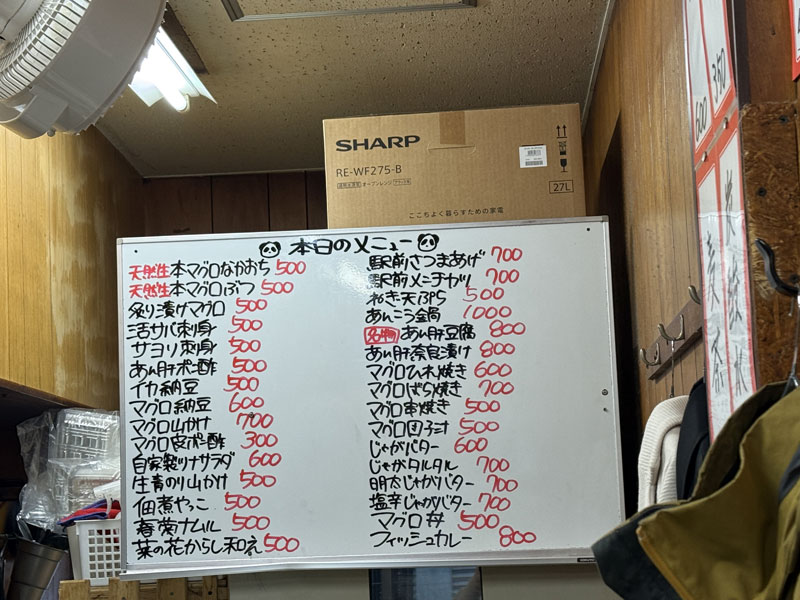 SHARP
RE-WF275-B
オーブンレンジ
27L
ここちよく暮らすための家電
本日のメニュー
天然生本マグロなかおち 500
天然生本マグロぶつ 500
炙り漬けマグロ 500
活サバ刺身 500
サヨリ刺身 500
あん肝ポン酢 500
イカ納豆 500
マグロ納豆 600
マグロ山かけ 700
マグロ皮ポン酢 300
自家製ツナサラダ 600
生青のり山かけ 500
佃煮やっこ 500
春菊ナムル 500
菜の花からし和え 500
駅前さつまあげ 700
駅前メンチカツ 700
ねぎ天3PS 500
あんこう鍋 1000
名物 あん肝豆腐 800
あん肝奈良漬け 800
マグロひれ焼き 600
マグロばら焼き 700
マグロ串焼き 500
マグロ団子汁 500
じゃがバター 600
じゃがタルタル 700
明太じゃがバター 700
塩辛じゃがバター 700
マグロ丼 500
フィッシュカレー 800
350
600